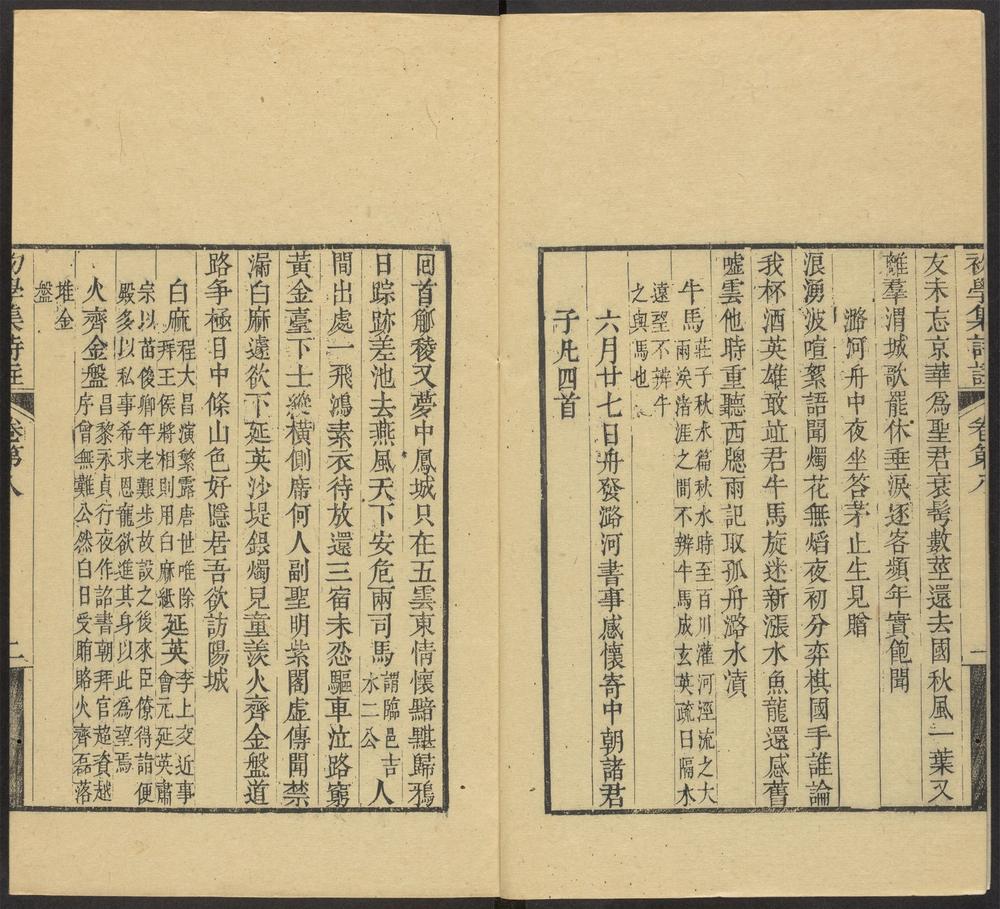 初學集詩註 卷第八 一
友未忘京華爲聖君衰髩數莖還去國秋風一葉又
離羣渭城歌罷休垂淚逐客頻年實飽聞
潞河舟中夜坐答茅止生見贈
浪湧波喧絮語聞燭花無熖夜初分弈棋國手誰論
我杯酒英雄敢竝君牛馬旋迷新漲水魚龍還感舊
噓雲他時重聽西牕雨記取孤舟潞水濆
牛馬 莊子秋水篇秋水時至百川灌河涇流之大
兩涘渚涯之間不辨牛馬成玄英疏曰隔水
遠望不辨牛
之與馬也
六月廿七日舟發潞河書事感懷寄中朝諸君
子凡四首
回首觚稜又夢中鳳城只在五雲東情懷黯黮歸鴉
日踪跡差池去燕風天下安危兩司馬 謂臨邑吉
水二公 人
間出處一飛鴻素衣待放還三宿未忍驅車泣路窮
黃金臺下士縱橫側席何人副聖明紫閣虛傳聞禁
漏白麻遽欲下延英沙堤銀燭見童羨火齊金盤道
路争極目中條山色好隱居吾欲訪陽城
白麻 程大昌演繁露唐世唯除
拜王侯將相則用白麻紙 延英 李上交近事
會元延英肅
宗以苗俊卿年老艱步故設之後來臣僚得詣便
殿多以私事希求恩寵欲進其身以此爲望焉
火齊金盤 昌黎永貞行夜作詔書朝拜官超資越
序曾無難公然白日受賄賂火齊磊落
堆金
盤
初學集詩註 卷第八 二